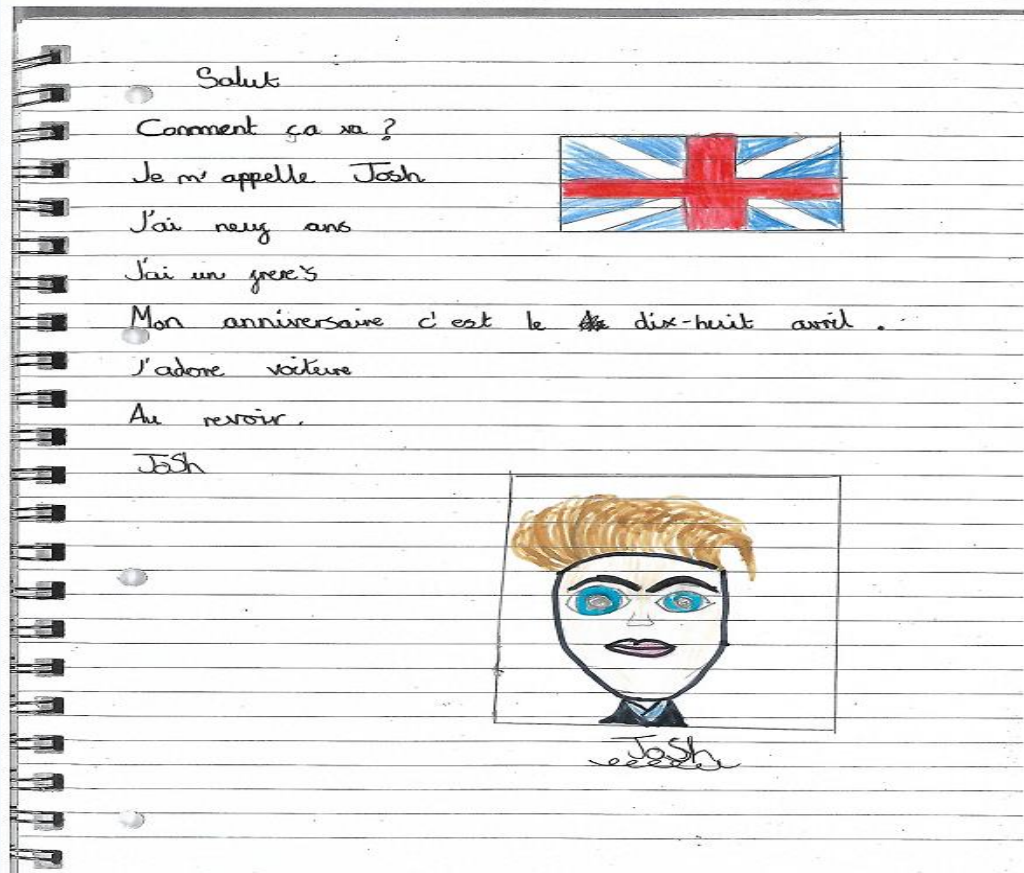 Salut
Comment ça va ?
Je m'appelle Josh
J'ai neuf ans
J'ai un frere's
Mon anniversaire c'est le dix-huit avril .
J'adore voiture
Au revoir.
Josh
Josh